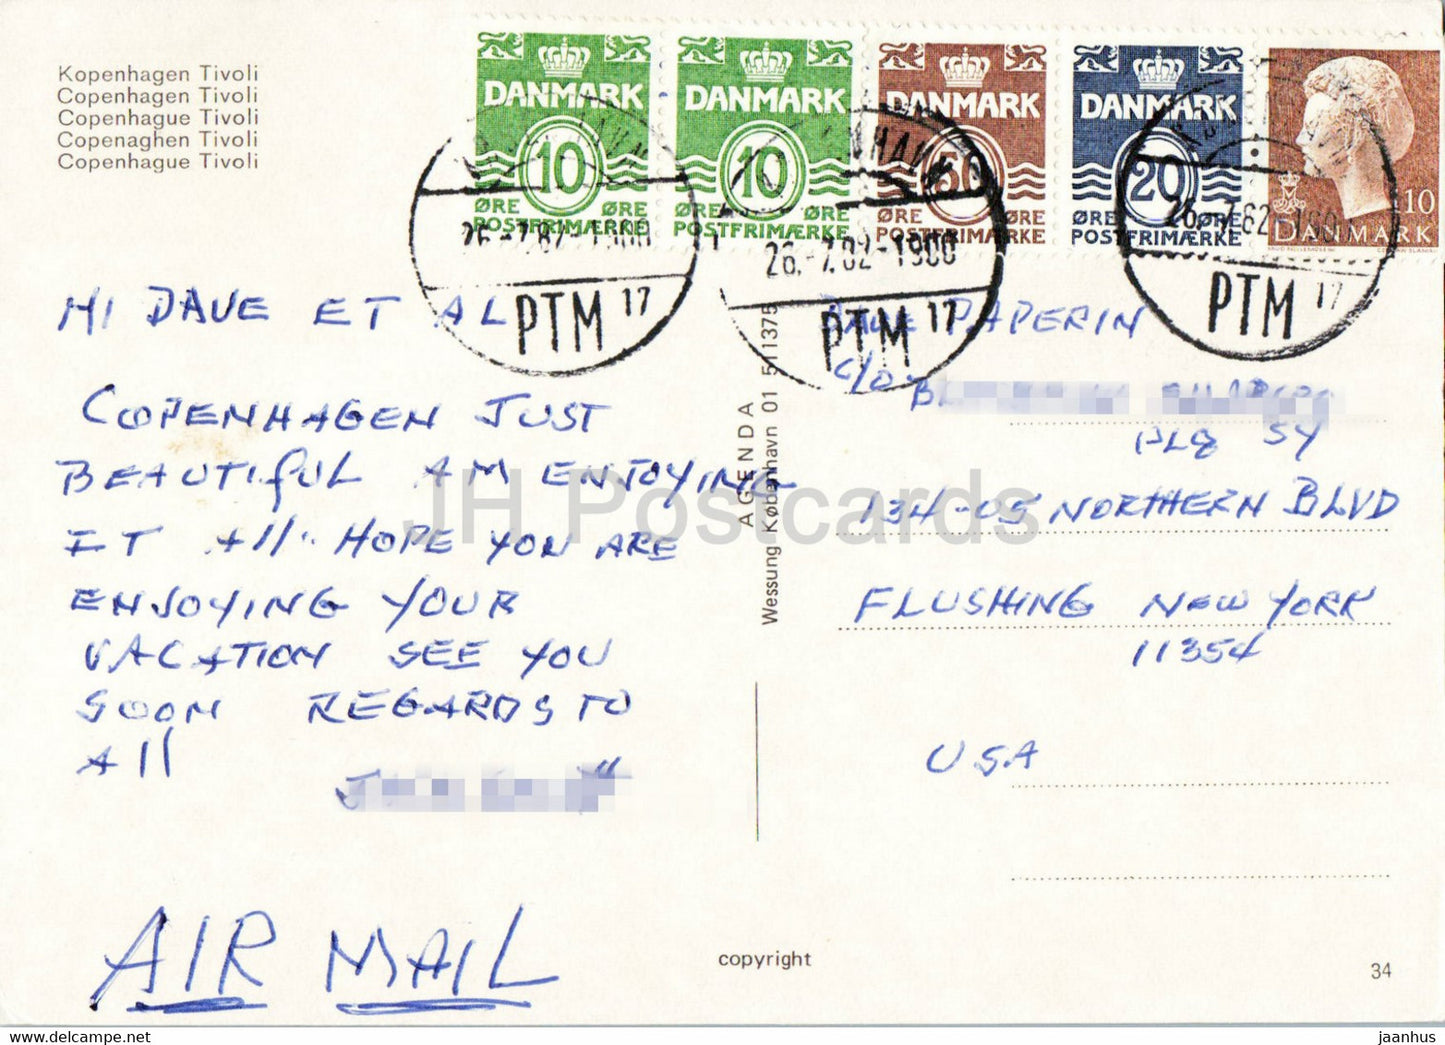 Kopenhagen Tivoli
Copenhagen Tivoli
Copenhague Tivoli
Copenaghen Tivoli
Copenhague Tivoli
DANMARK
10
ØRE ØRE
POSTFRIMÆRKE
DANMARK
10
ØRE ØRE
POSTFRIMÆRKE
DANMARK
50
ØRE ØRE
POSTFRIMÆRKE
DANMARK
20
ØRE ØRE
POSTFRIMÆRKE
110
DANMARK
26.-7.82-1900
PTM 17
26.-7.82-1900
PTM 17
26.-7.82-190
PTM 17
HI DAVE ET AL
COPENHAGEN JUST
BEAUTIFUL AM ENJOYING
IT All.. HOPE YOU ARE
ENJOYING YOUR
VACATION SEE YOU
SOON REGARDS TO
All
AIR MAIL
AGENDA
Wessung København 01 511375
DAVE PAPERIN
C/O
134-05 NORTHERN BLVD
FLUSHING NEW YORK
11354
USA
copyright
34
JH Postcards
jaanhus
www.delcampe.net